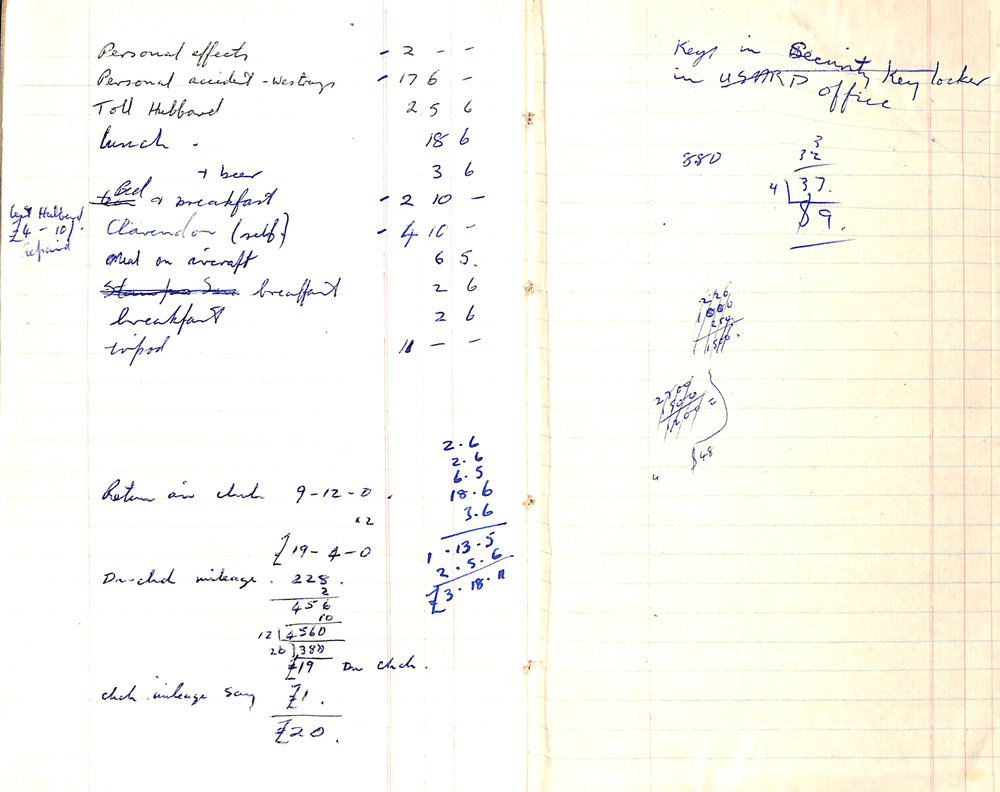 Personal effects - 2 - -
Personal accident - Westrays - 17 6 -
Toll Hubbard 2 5 6
lunch . 18 6
+ beer 3 6
Bed + breakfast - 2 10 -
Hubbard
£4 - 10/.
repaid
Clarendon (self) - 4 10 -
meal on aircraft 6 5.
breakfast 2 6
breakfast 2 6
tripod 11 - -
2.6
2.6
6.5
18.6
3.6
1.13.5
2.5.6
£3.18.11
Return air chch 9-12-0.
x2
£19-4-0
Dn-chch mileage. 228.
2
456
10
12 4560
20 380
£19 Dn chch.
chch mileage say £1.
£20.
Keys in Security Key locker
in USARP office
880
3
32
4 37.
$9.
$48